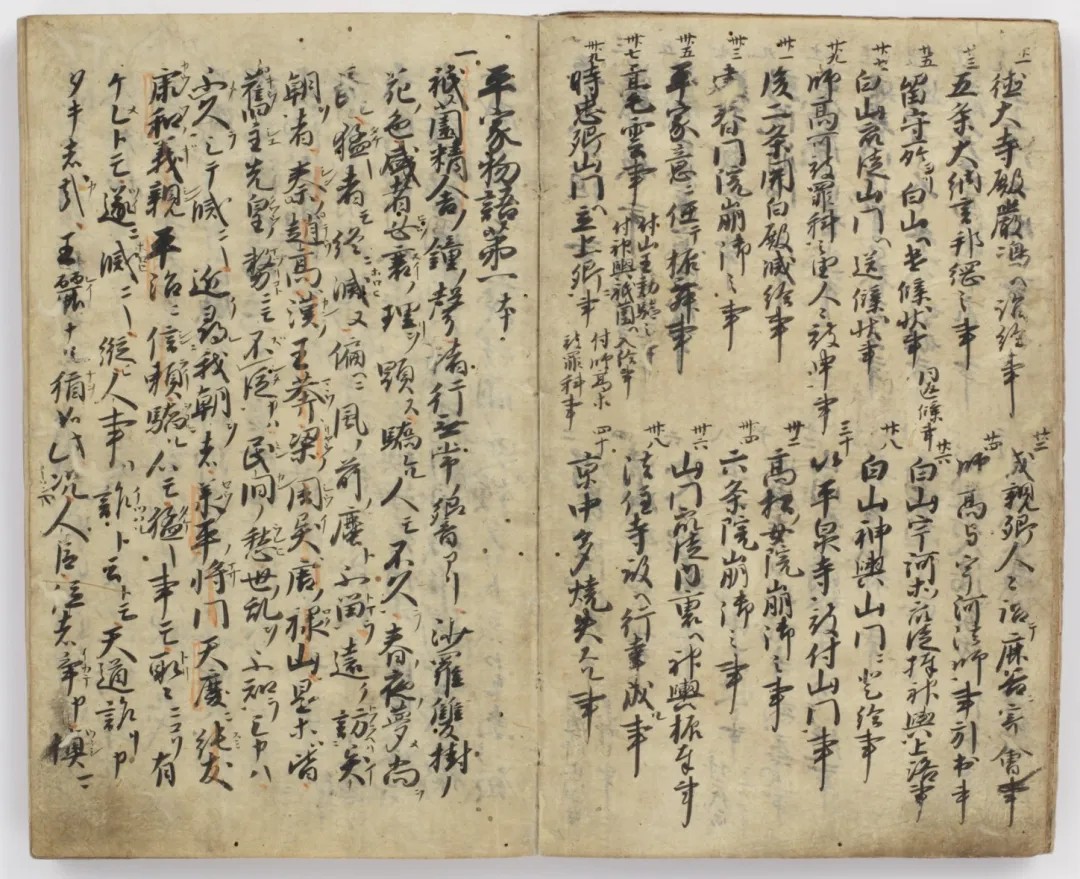 廿一 徳大寺殿厳嶋へ詣給事
廿二 成親卿人々語 鹿谷寄會事
廿三 五条大納言邦綱之事
廿四 師高与宇河法師事引出事
廿五 留守所ヨリ白山ヘ牒状事 同返牒事
廿六 白山宇河等衆徒捧神輿上洛事
廿七 白山衆徒山門ヘ送牒状事
廿八 白山神輿山門ニ登給事
廿九 師高可被罪科之由人々被申事
三十 以平泉寺被付山門事
卅一 後二条関白殿滅給事
卅二 高松女院崩御之事
卅三 建春門院崩御之事
卅四 六条院崩御之事
卅五 平家意ニ任テ振舞事
卅六 山門衆徒内裏ヘ神輿振奉事
卅七 豪雲事 付山王効験之事 付神輿祇園ヘ入給事
卅八 法住寺殿ヘ行幸成事
卅九 時忠卿山門ヘ立上卿事 付師高等被罪科事
四十 京中多焼失スル事
平家物語第一本
一 祇園精舎ノ鐘ノ聲諸行無常ノ響アリ沙羅雙樹ノ
花色盛者必衰ノ理ヲ顕ス驕レル人モ不久春夜夢尚
長猛者モ終滅ヌ偏ニ風ノ前ノ塵ト不留遠ク訪異
朝者秦趙高漢王莽梁周異唐禄山是等皆
舊主先皇務ニモ不従民間ノ愁世ノ乱ヲ不知シカハ
不久シテ滅ニキ近尋我朝者承平将門天慶ニ純友
康和義親平治ニ信頼驕ル心モ猛キ事モ取々ニコソ有
ケレトモ遂ニ滅ニキ縦ヒ人事ハ詐ト云トモ天道詐リ
カタキ者哉王麗ナル猶如此況人臣位者争カ慎マ